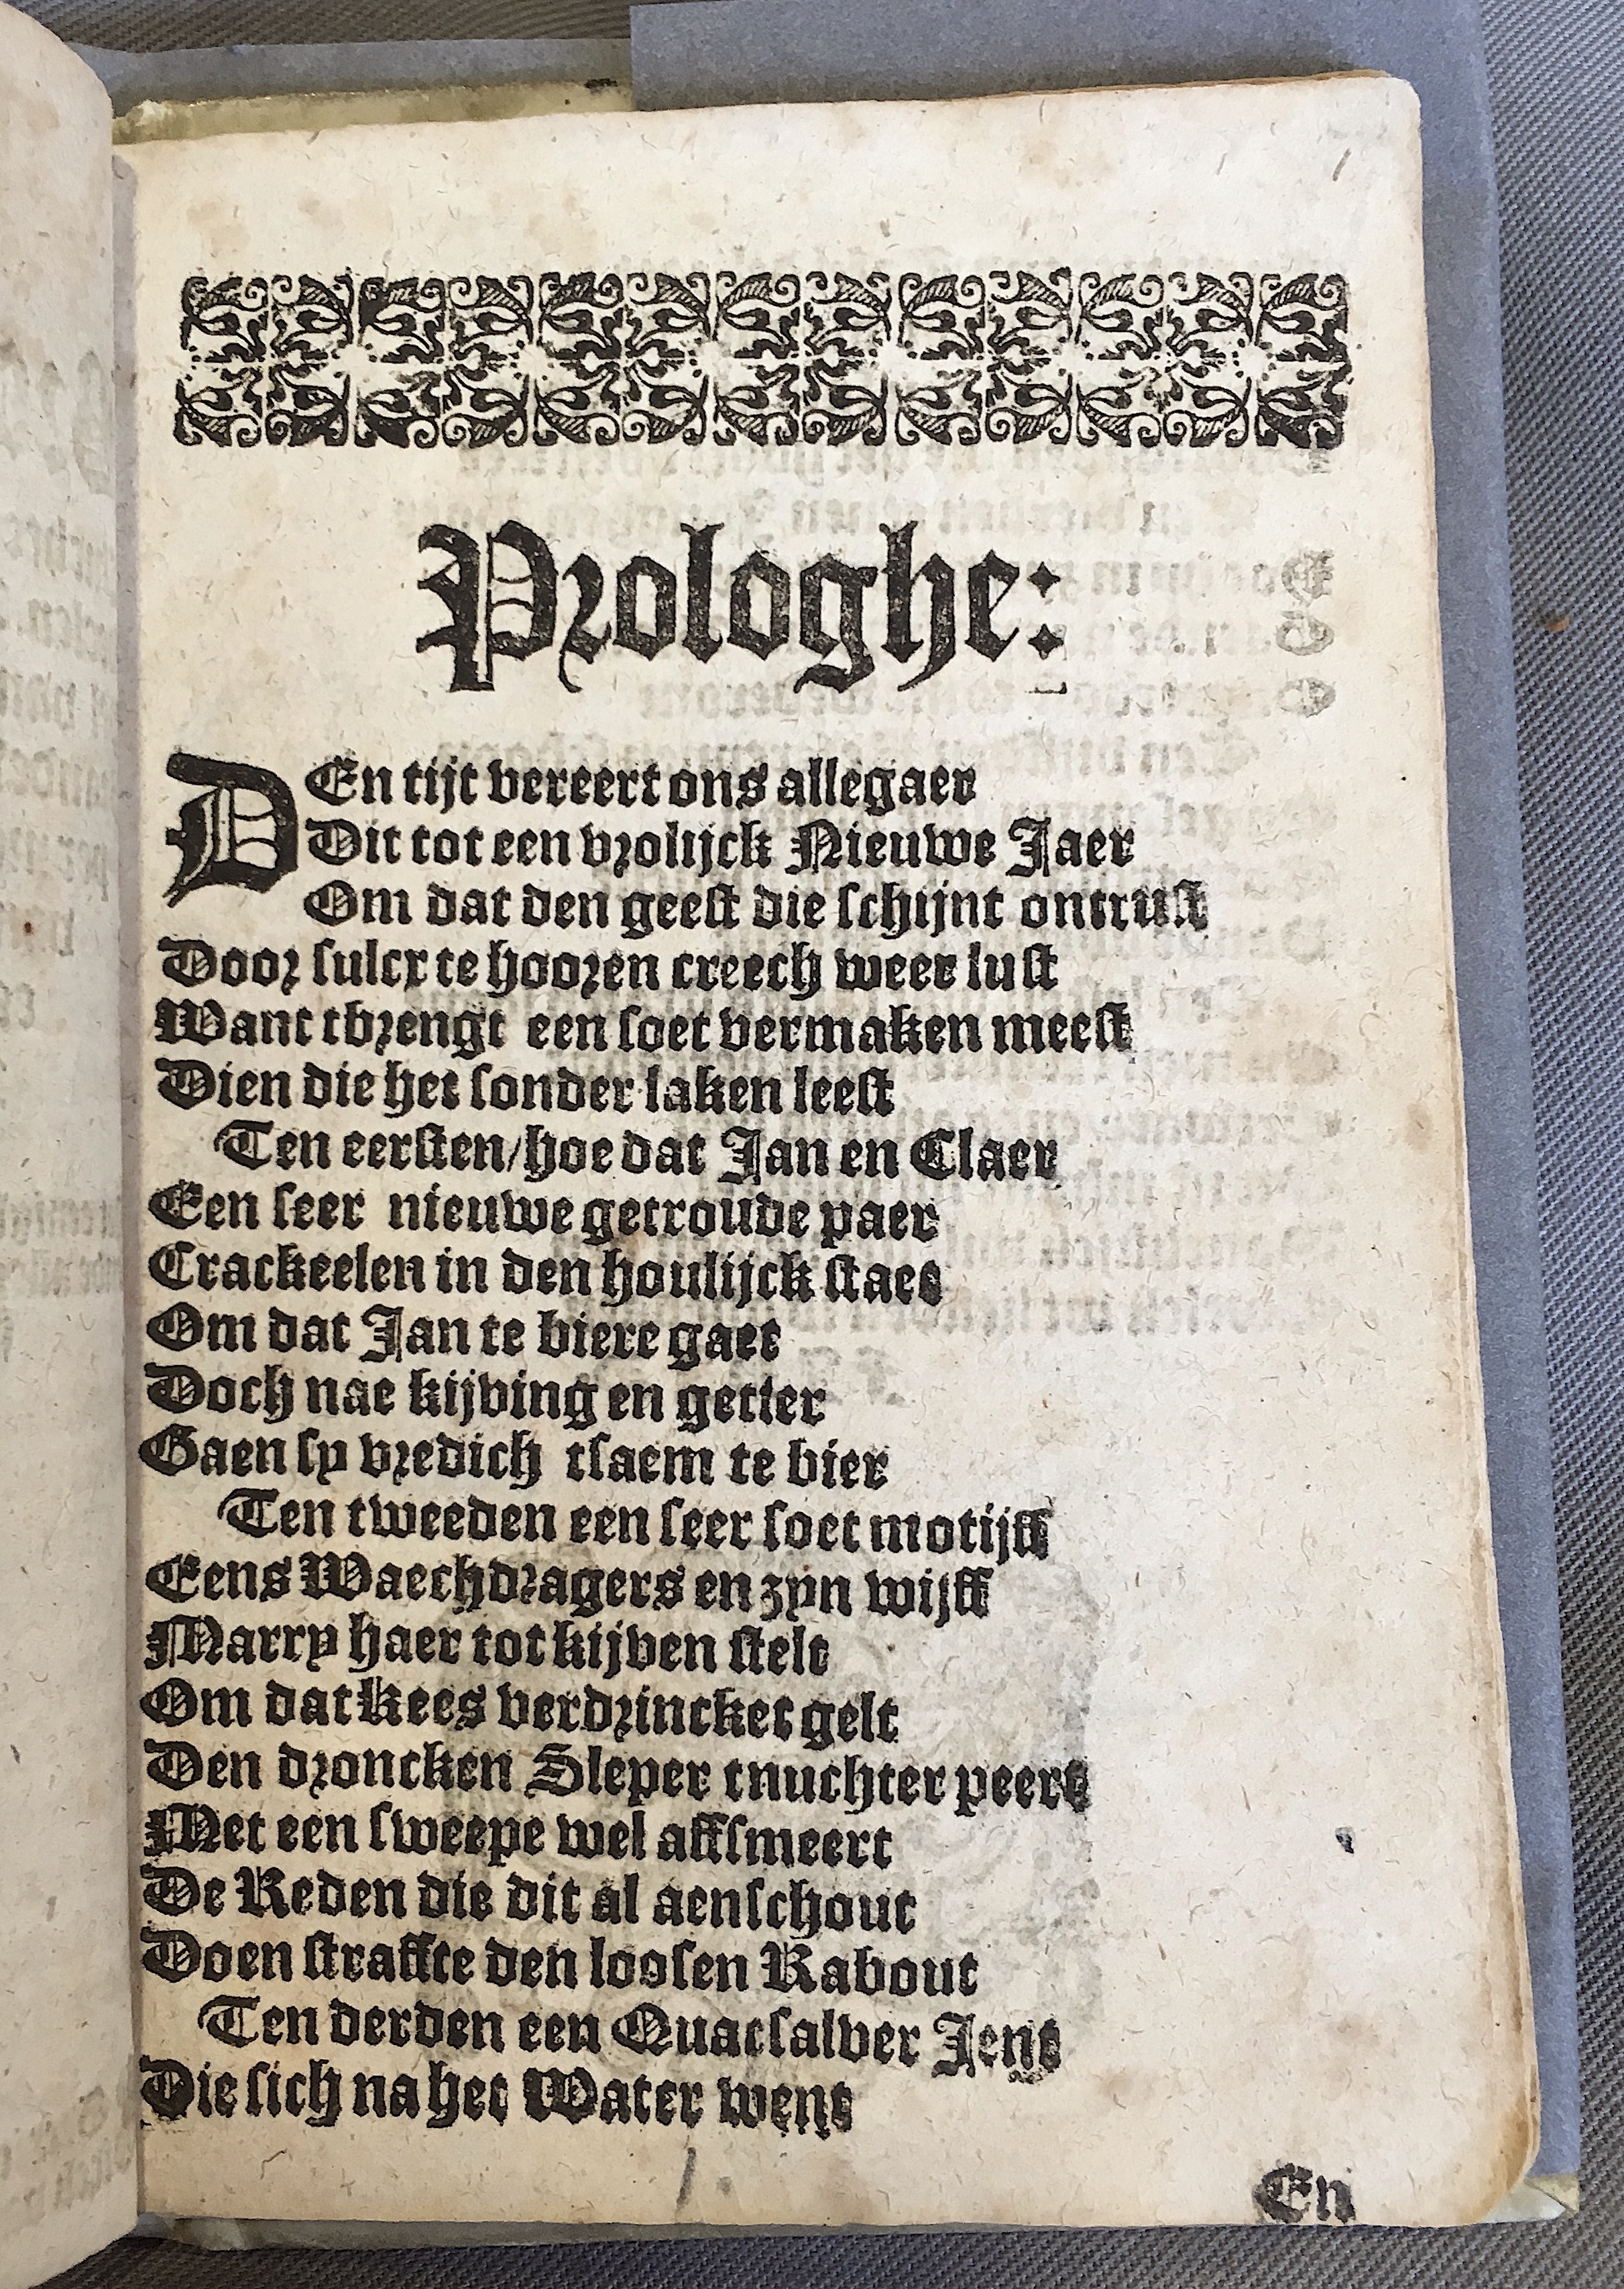 Prologhe:
DEn tijt vereert ons allegaer
Dit tot een vrolijck Nieuwe Jaer
Om dat den geest die schijnt ontrust
Door sulcx te hooren creech weer lust
Want tbrengt een soet vermaken meest
Dien die het sonder laken leest
Ten eersten/hoe dat Jan en Claer
Een seer nieuwe getroude paer
Crackeelen in den houlijck staet
Om dat Jan te biere gaet
Doch nae kijving en getier
Gaen sy vredich tsaem te bier
Ten tweeden een seer soet motijff
Eens Waechdragers en zyn wijff
Marry haer tot kijven stelt
Om dat Kees verdrincket gelt
Den droncken Sleper tnuchter peert
Met een sweepe wel affsmeert
De Reden die dit al aenschout
Doen straffte den loosen Rabout
Ten derden een Quacsalver Jent
Die sich na het Water went
En